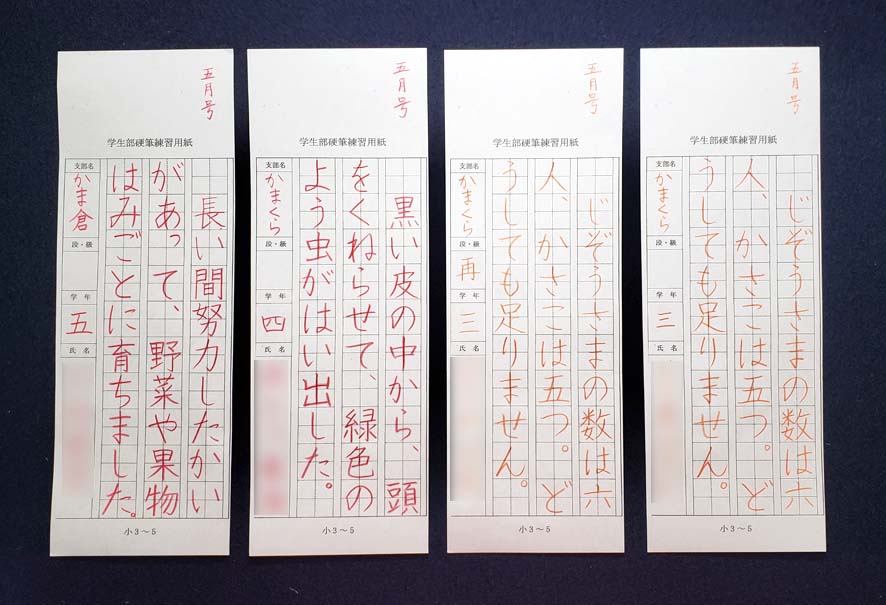 五月号
学生部硬筆練習用紙
長い間努力したかい
があって、野菜や果物
はみごとに育ちました。
支部名
かま倉
段・級
学年
五
氏名
小3〜5
五月号
学生部硬筆練習用紙
黒い皮の中から、頭
をくねらせて、緑色の
よう虫がはい出した。
支部名
かまくら
段・級
学年
四
氏名
小3〜5
五月号
学生部硬筆練習用紙
じぞうさまの数は六
人、かさこは五つ。ど
うしても足りません。
支部名
かまくら
段・級
再
学年
三
氏名
小3〜5
五月号
学生部硬筆練習用紙
じぞうさまの数は六
人、かさこは五つ。ど
うしても足りません。
支部名
かまくら
段・級
学年
三
氏名
小3〜5